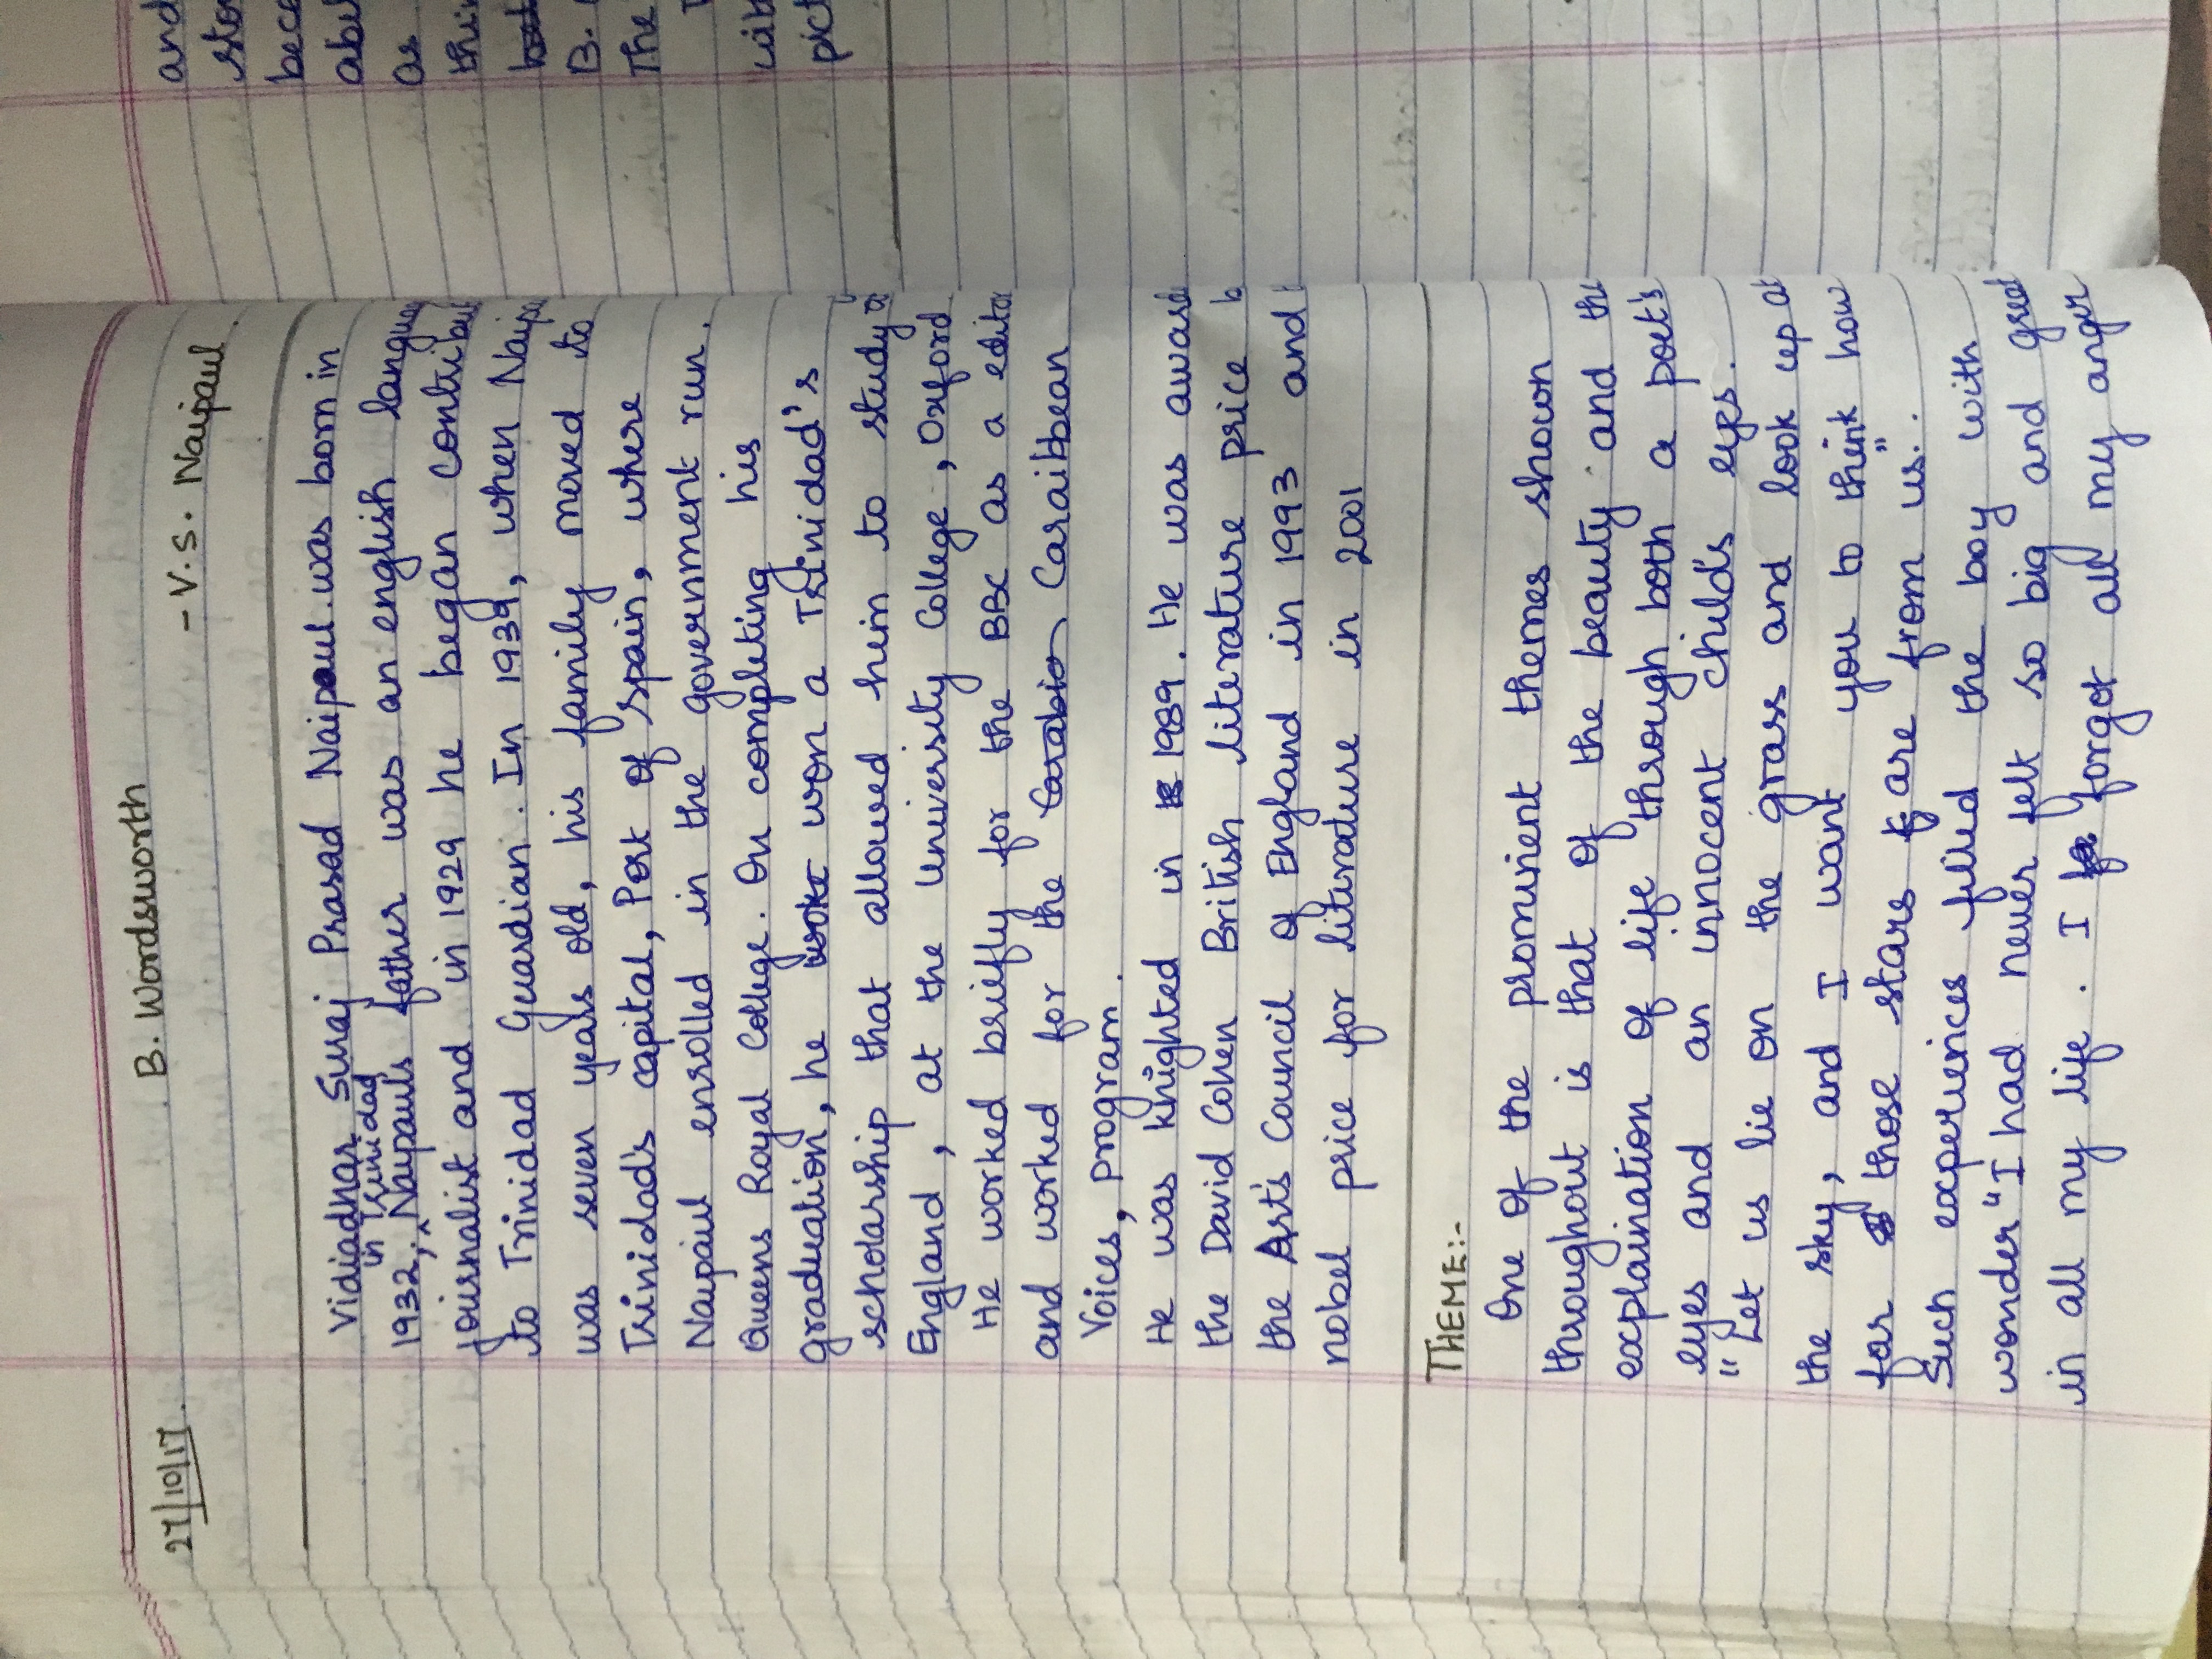 B. Wordsworth
27/10/17.
- V. S. Naipaul.
Vidiadhar Suraj Prasad Naipaul was born in
in Trinidad
1932, Naipauls father was an english langua
journalist and in 1929 he began contribu
to Trinidad Guardian. In 1939, when Naipa
was seven years old, his family moved to
Trinidad's capital, Port of Spain, where
Naipaul enrolled in the government run.
Queens Royal College. On completing his
graduation, he won a Trinidad's
scholarship that allowed him to study
England, at the University College, Oxford
He worked briefly for the BBC as a editor
and worked for the Caraibbean
Voices, program.
He was knighted in 1989. He was award
the David Cohen British literature price b
the Art's Council of England in 1993 and
nobel price for literature in 2001
THEME:-
One of the prominent themes shown
throughout is that of the beauty and the
explaination of life through both a poet's
eyes and an innocent child's eyes.
"Let us lie on the grass and look up at
the sky, and I want you to think how
far those stars are from us.".
Such experiences filled the boy with
wonder "I had never felt so big and great
in all my life. I forgot all my anger
and
sto
bece
abu
as
thin
B.
The
wit
pict